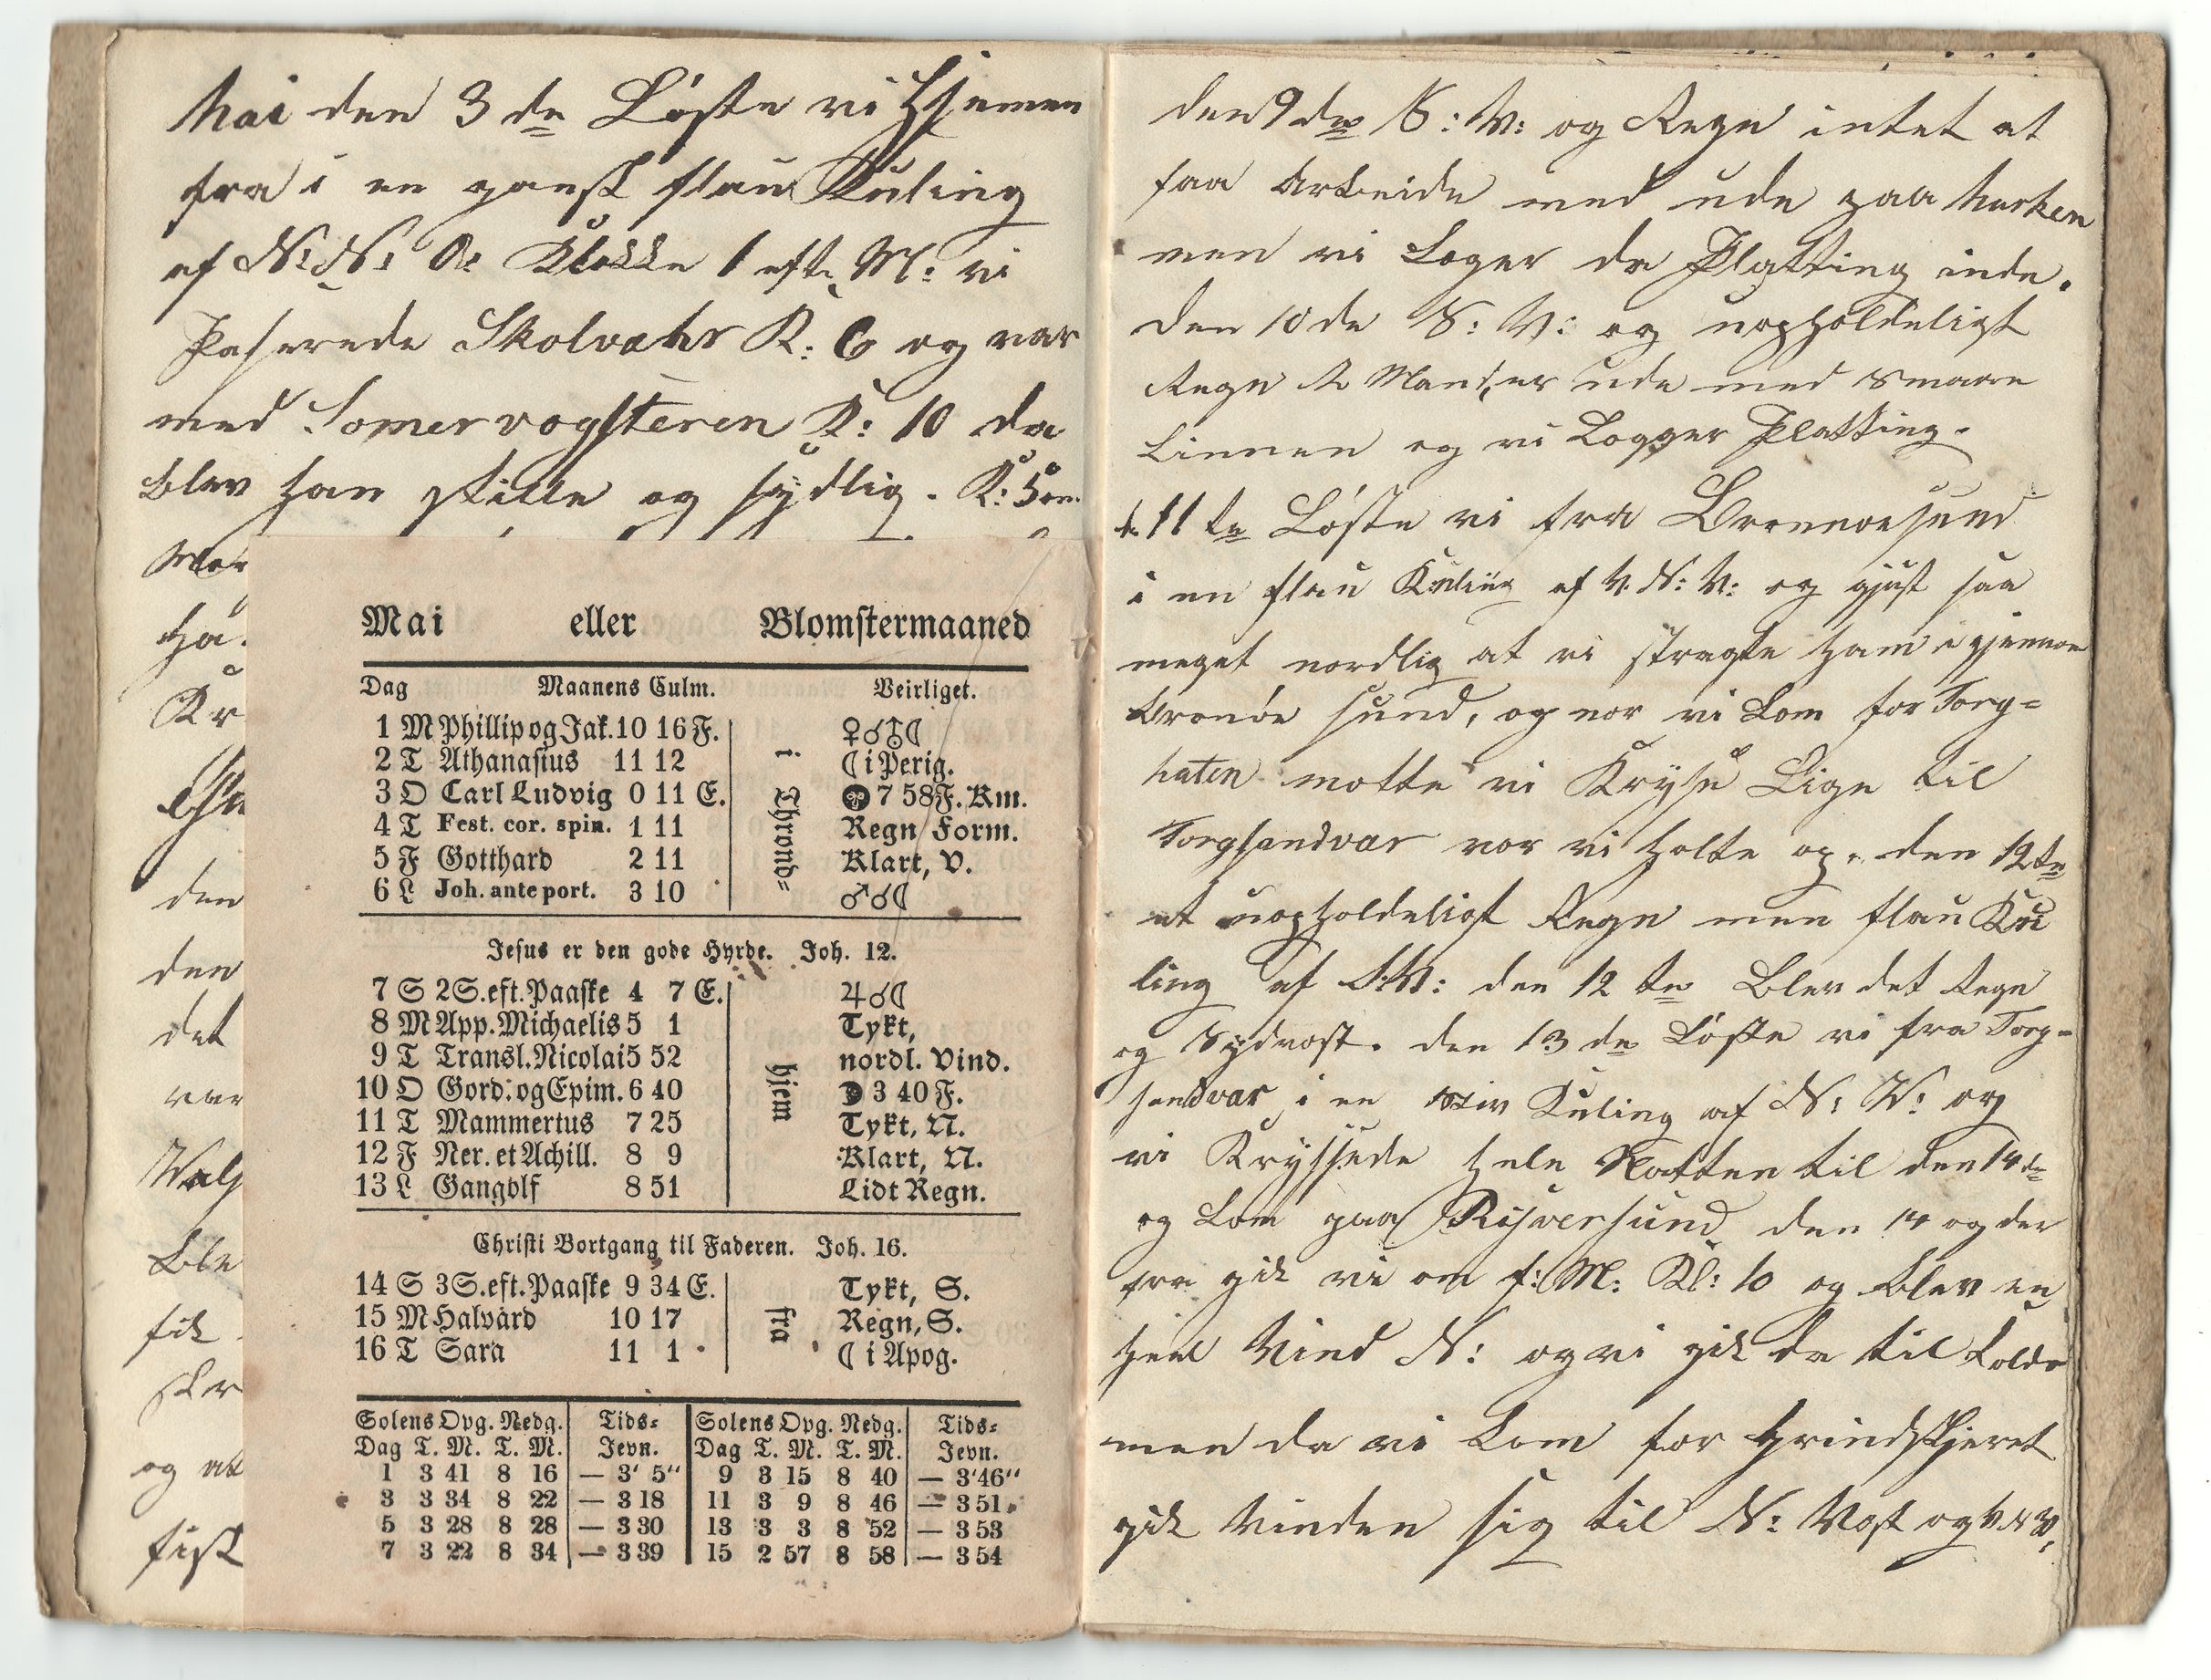 Mai den 3 de Löste vi Hjemen
fra i en gansk flau Kuling
af N: N: O: Klokke 1 eft. M: vi
Paserede Skolvahr K: 6 og var
med Somervogsteren K: 10 da
blev han stille og sÿdlig. K: 5 em.
ha.
Kr
den
den
det
var
Ble
fik
skr
og at
fisk
Mai eller Blomstermaaned
Dag Maanens Culm. Veirliget.
1 M Phillip og Jak. 10 16 F. ♀☌♅☾
2 T Athanasius 11 12 i ☾ i Perig.
3 O Carl Ludvig 0 11 E. Thrond= 7 58 F. Nm.
4 T Fest. cor. spin. 1 11 Regn Form.
5 F Gotthard 2 11 Klart, V.
6 L Joh. ante port. 3 10 ♂☌☾
Jesus er den gode Hyrde. Joh. 12.
7 S 2S. eft. Paaske 4 7 E. ♃☌☾
8 M App. Michaelis 5 1 Tykt,
9 T Transl. Nicolai 5 52 nordl. Vind.
10 O Gord. og Epim. 6 40 hjem 3 40 F.
11 T Mammertus 7 25 Tykt, N.
12 F Ner. et Achill. 8 9 Klart, N.
13 L Gangolf 8 51 Lidt Regn.
Christi Bortgang til Faderen. Joh. 16.
14 S 3S. eft. Paaske 9 34 E. Tykt, S.
15 M Halvard 10 17 fra Regn, S.
16 T Sara 11 1 ☾ i Apog.
Solens Opg. Nedg. Tids= Solens Opg. Nedg. Tids=
Dag T. M. T. M. Jevn. Dag T. M. T. M. Jevn.
1 3 41 8 16 — 3' 5" 9 3 15 8 40 — 3' 46"
3 3 34 8 22 — 3 18 11 3 9 8 46 — 3 51
5 3 28 8 28 — 3 30 13 3 3 8 52 — 3 53
7 3 22 8 34 — 3 39 15 2 57 8 58 — 3 54
den 9 de S: V: og Regn intet at
faa Arbeide med ude paa Marken
men vi Loger da Platting inde.
Den 10 de S: V: og uopholdeligt
Regn 2 Mander ude med smaae
Linnen og vi Logger Platting.
d. 11 te Löste vi fra Bronnoesund
i en flau Kuling af V. N: V: og gjust saa
meget nordlig at vi stragte ham igjennem
Bronöe sund, og nor vi kom for Torg=
haten motte vi Krÿse Lige til
Torgsandvar vor vi holte op. den 12te
et uopholdeligt Regn men flau Ku
ling af S:V: den 12 te Blev det Regn
og Sydvost. den 13 de Löste vi fra Torg=
sandvar i en stiv Kuling af N: V: og
vi Kryssede hele Natten til den 14 de
og kom paa Risversund den 14 og der
fra gik vi om f: M: Kl: 10 og blev en
hiel Vind N: og vi gik da til Folde
men da vi kom for Grindskjeret
gik Vinden sig til N: Vost og V.N.V.